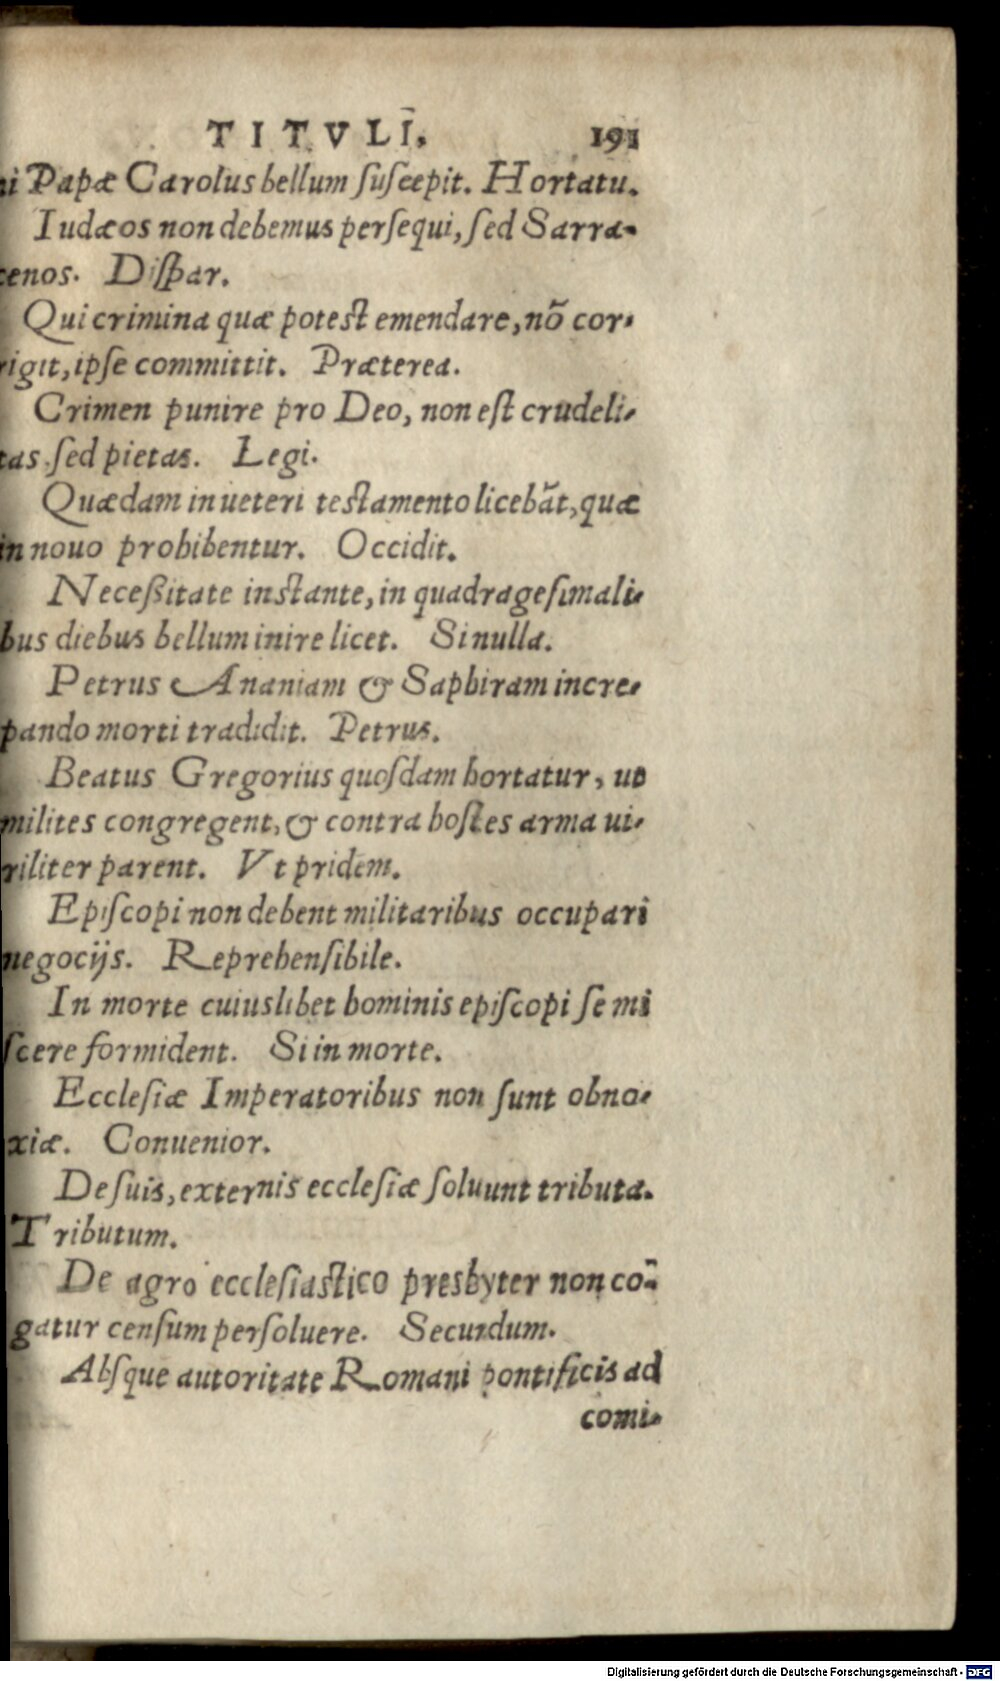 TITVLI. 191
ni Papæ Carolus bellum ſuſcepit. Hortatu.
Iudæos non debemus perſequi, ſed Sarra-
cenos. Diſpar.
Qui crimina quæ potest emendare, nõ cor-
rigit, ipſe committit. Præterea.
Crimen punire pro Deo, non eſt crudeli-
tas ſed pietas. Legi.
Quædam in ueteri testamento licebãt, quæ
in nouo prohibentur. Occidit.
Neceßitate instante, in quadrageſimali-
bus diebus bellum inire licet. Si nulla.
Petrus Ananiam & Saphiram incre-
pando morti tradidit. Petrus.
Beatus Gregorius quoſdam hortatur, ut
milites congregent, & contra hoſtes arma ui-
riliter parent. Vt pridem.
Epiſcopi non debent militaribus occupari
negocijs. Reprehenſibile.
In morte cuiuslibet hominis epiſcopi ſe mi
ſcere formident. Si in morte.
Eccleſiæ Imperatoribus non ſunt obno-
xiæ. Conuenior.
De ſuis, externis eccleſiæ ſoluunt tributa.
Tributum.
De agro eccleſiastico presbyter non co-
gatur cenſum perſoluere. Secundum.
Abſque autoritate Romani pontificis ad
comi-
Digitalisierung gefördert durch die Deutsche Forschungsgemeinschaft - DFG